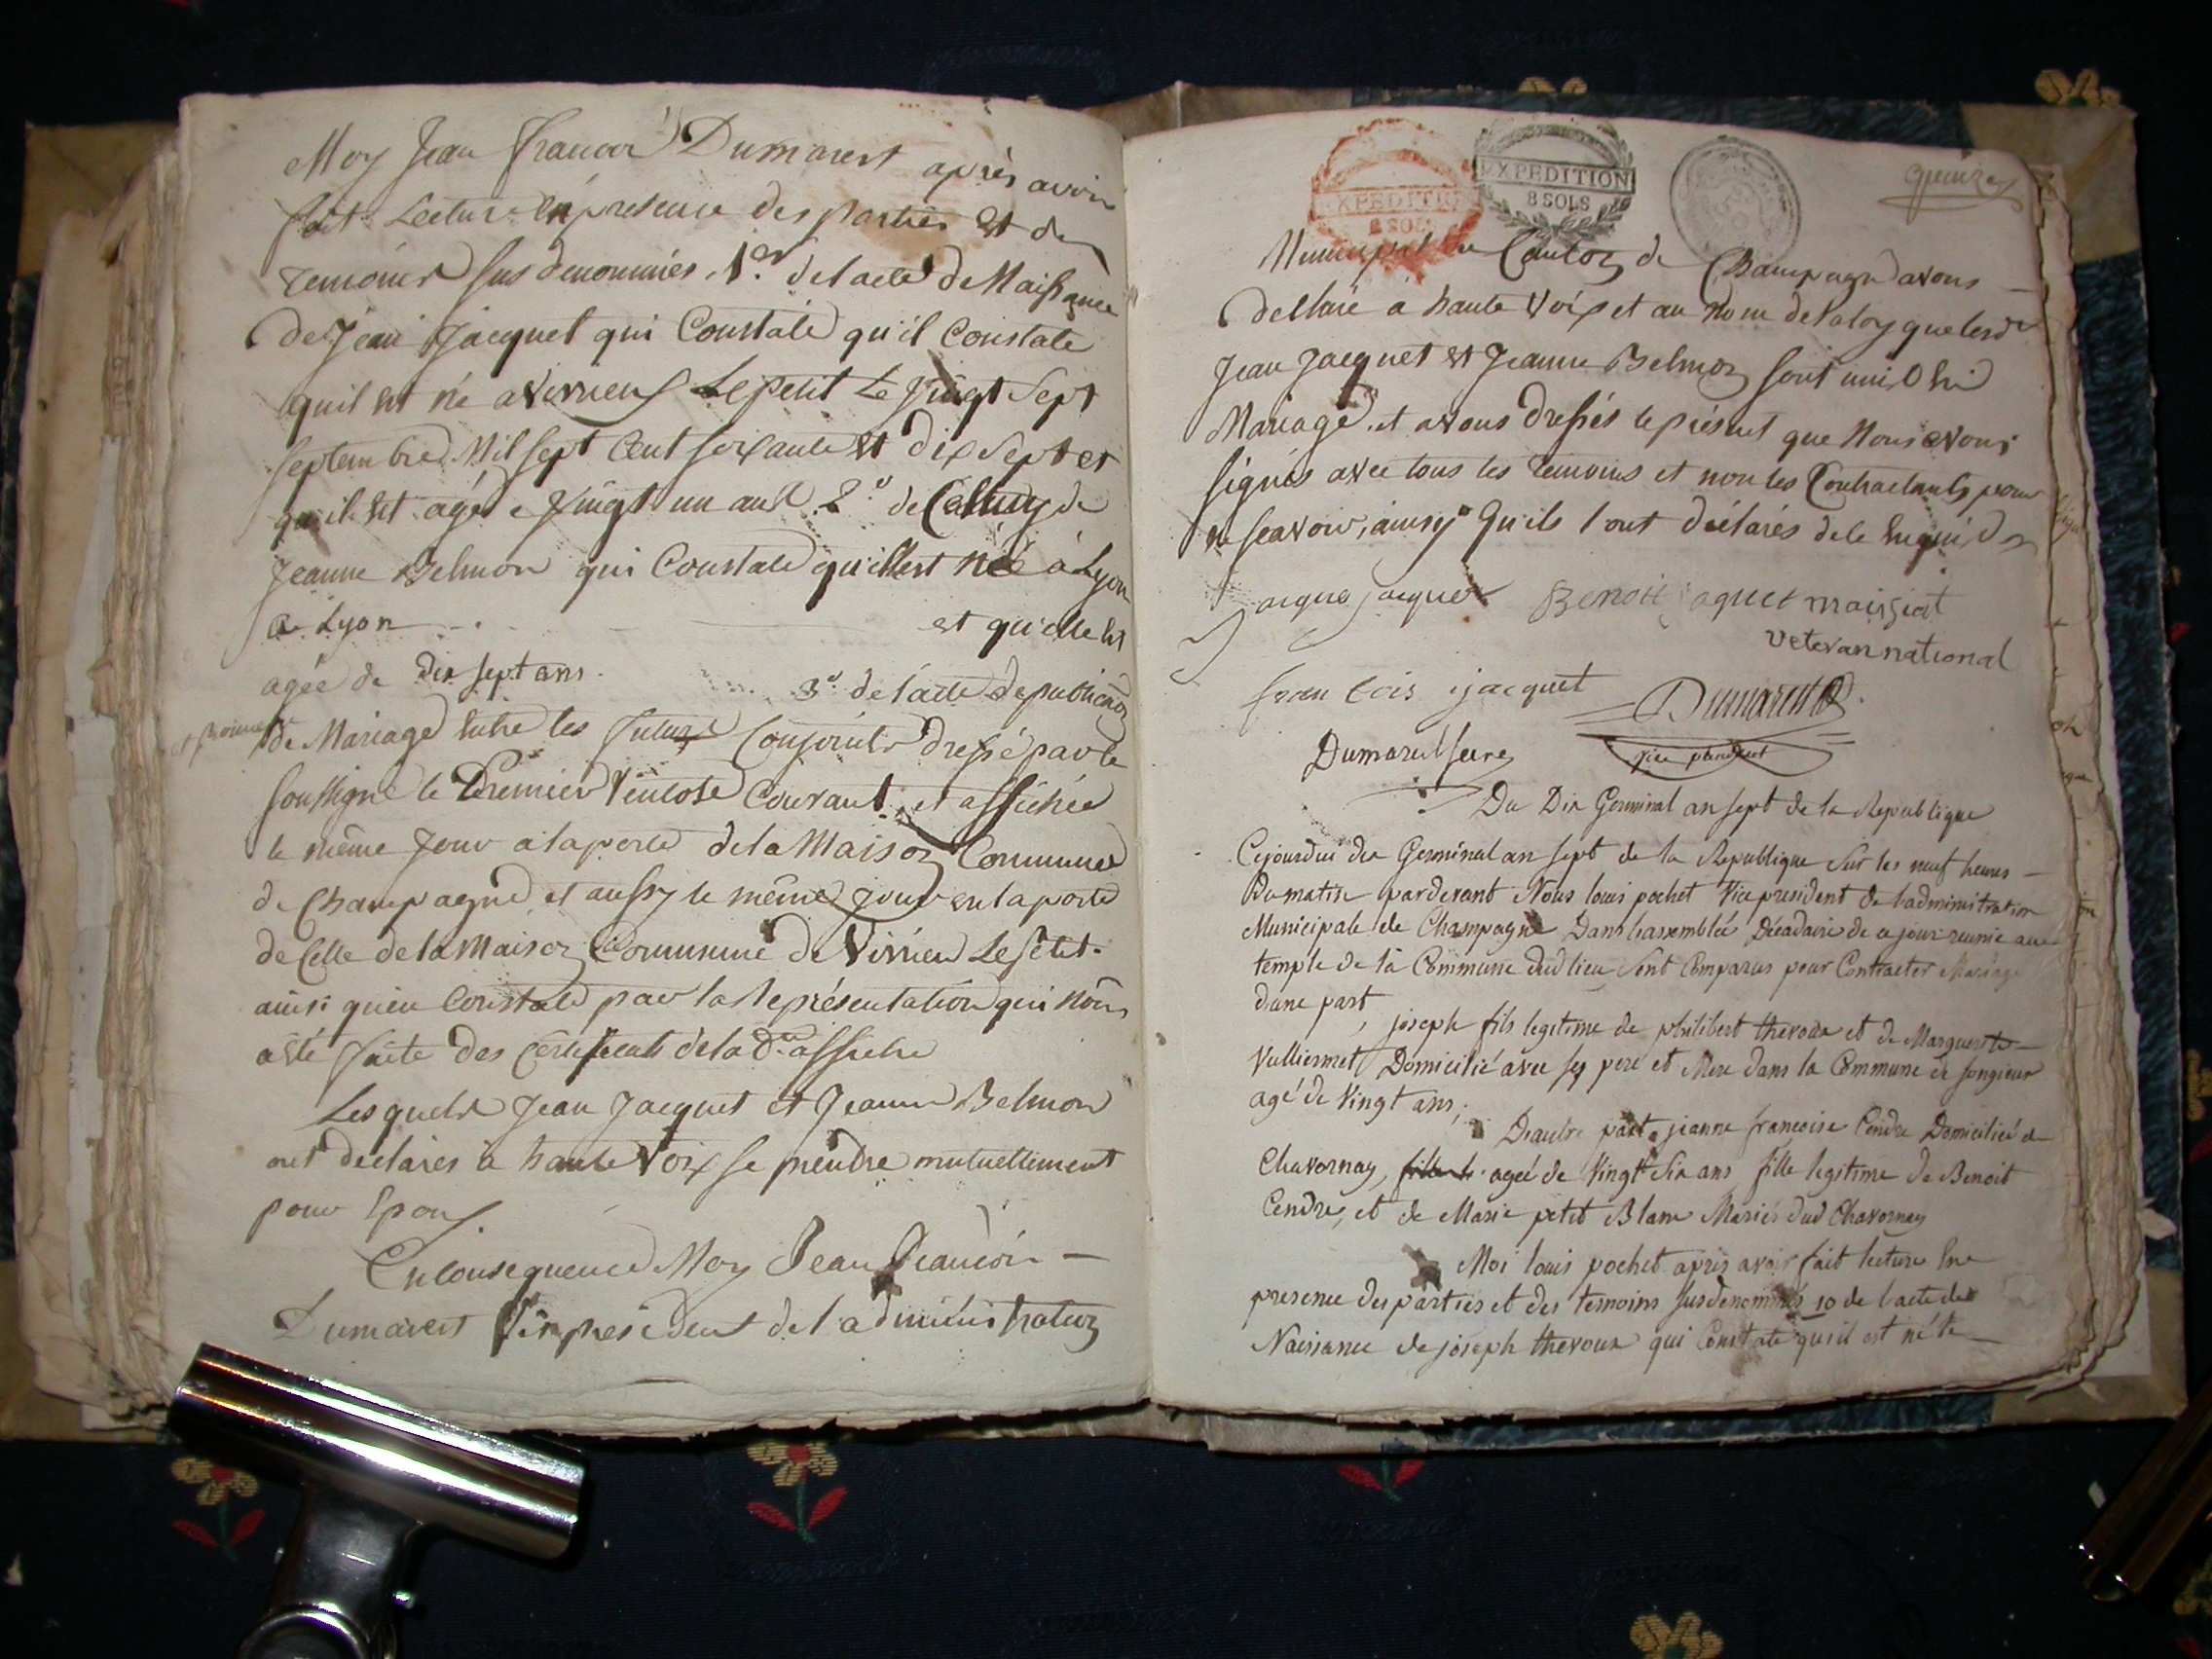 Moy Jean francois Dumarest après avoir
fait Lecture en presence des parties et des
temoins sus denommés, 1er de l'acte de Naissance
de Jean Jacquet qui Constate qu'il Constate
quil est né a Virieu Le petit Le vingt Sept
Septembre Mil sept Cent soixante et dix Sept et
qu'il est agé de vingt un ans 2° de Celluy de
Jeanne Belmon qui Constate qu'elle est née à Lyon
a Lyon et qu'elle est
agée de dix sept ans. 3° de l'acte de publication
de Mariage entre les futurs Conjoints dressé par le
soussigné le Premier Ventose Courant et affichée
le même Jour a la porte de la Maison Commune
de Champagne et aussy le même Jour en la porte
de Celle de la Maison Commune de Virieu Le petit.
ainsi qu'en Constate par la Représentation qui nous
a été faite des Certificats de la dte affiche
Lesquels Jean Jacquet et Jeanne Belmon
ont déclarés à haute Voix se prendre mutuellement
pour Epoux.
En Consequence Moy Jean francois
Dumarest Vice president de l'administration
quinze
EXPEDITION
8 SOLS
EXPEDITION
8 SOLS
Municipal du Canton de Champagne avons
declaré à haute Voix et au Nom de la loy que lesds
Jean Jacquet et Jeanne Belmon sont unis En
Mariage, et avons dressés le présent que Nous avons
signés avec tous les temoins et non les Contractants pour
ne scavoir, ainsy qu'ils l'ont déclarés de le enquis
jacque jacquet Benoit jaquet maissiat
veteran national
fran cois jacquet Dumarest
Dumarest secre vice president
Du Dix Germinal an sept de la Republique
Cejourdui dix Germinal an sept de la Republique Sur les neuf heures
du matin pardevant Nous louis pochet Vice president de l'administration
Municipale de Champagne Dans l'assemblée Décadaire de ce jour reunie au
temple de la Commune dud lieu, Sont Comparus pour Contracter Mariage
dune part
joseph fils legitime de philibert thevoux et de Marguerite
Vulliermet Domicilié avec ses pere et Mere dans la Commune de songieux
agé de Vingt ans,
D'autre part jeanne francoise Cendre Domiciliée de
Chavornay, fille le agée de Vingt Six ans fille legitime de Benoit
Cendre, et de Marie petit Blanc Mariés dud Chavornay
Moi louis pochet après avoir fait lecture En
presence des parties et des temoins susdenommés 1o de l'acte de
Naissance de joseph thevoux qui Constate qu'il est né le